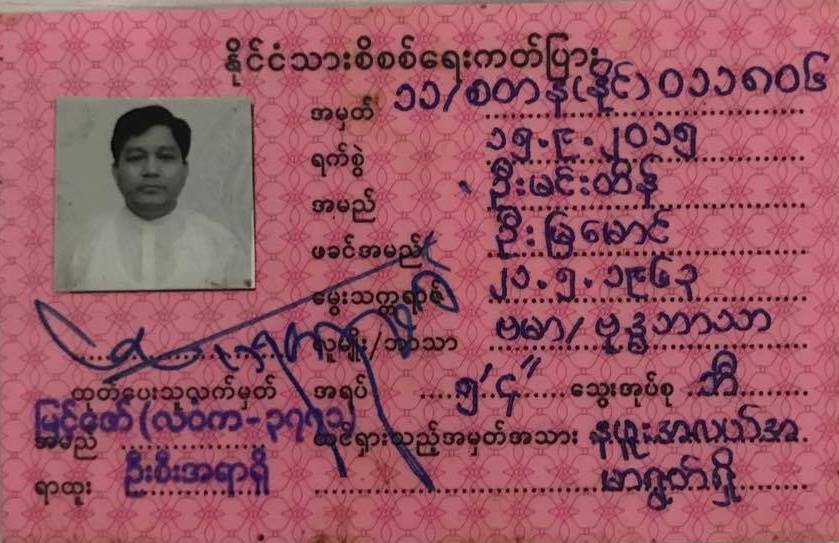 နိုင်ငံသားစိစစ်ရေးကတ်ပြား
အမှတ် ၁၁/စတန(နိုင်)၀၁၁၈၀၆
ရက်စွဲ ၁၅.၉.၂၀၁၅
အမည် ဦးမင်းထိန်
ဖခင်အမည် ဦးမြမောင်
မွေးသက္ကရာဇ် ၂၁.၅.၁၉၆၃
လူမျိုး/ဘာသာ ဗမာ/ဗုဒ္ဓဘာသာ
ထုတ်ပေးသူလက်မှတ် အရပ် ၅'၄" သွေးအုပ်စု ဘီ
အမည် မြင့်ဇော်(လဝက-၃၇၇၁) ထင်ရှားသည့်အမှတ်အသား နဖူးအလယ်အ
ရာထူး ဦးစီးအရာရှိ မာရွတ်ရှိ